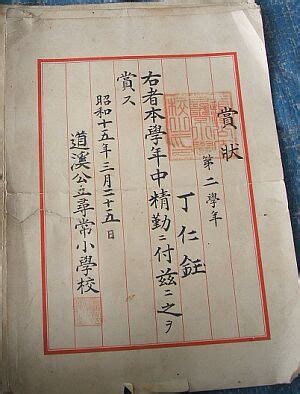 賞狀
第二學年
丁仁鉦
右者本學年中精勤ニ付玆ニ之ヲ
賞ス
昭和十五年三月二十五日
道溪公立尋常小學校